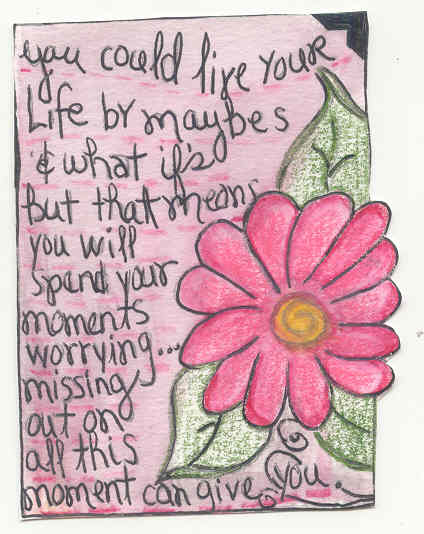 you could live your
Life by maybes
& what if's
but that means
you will
spend your
moments
worrying...
missing
out on
all this
moment can give you.